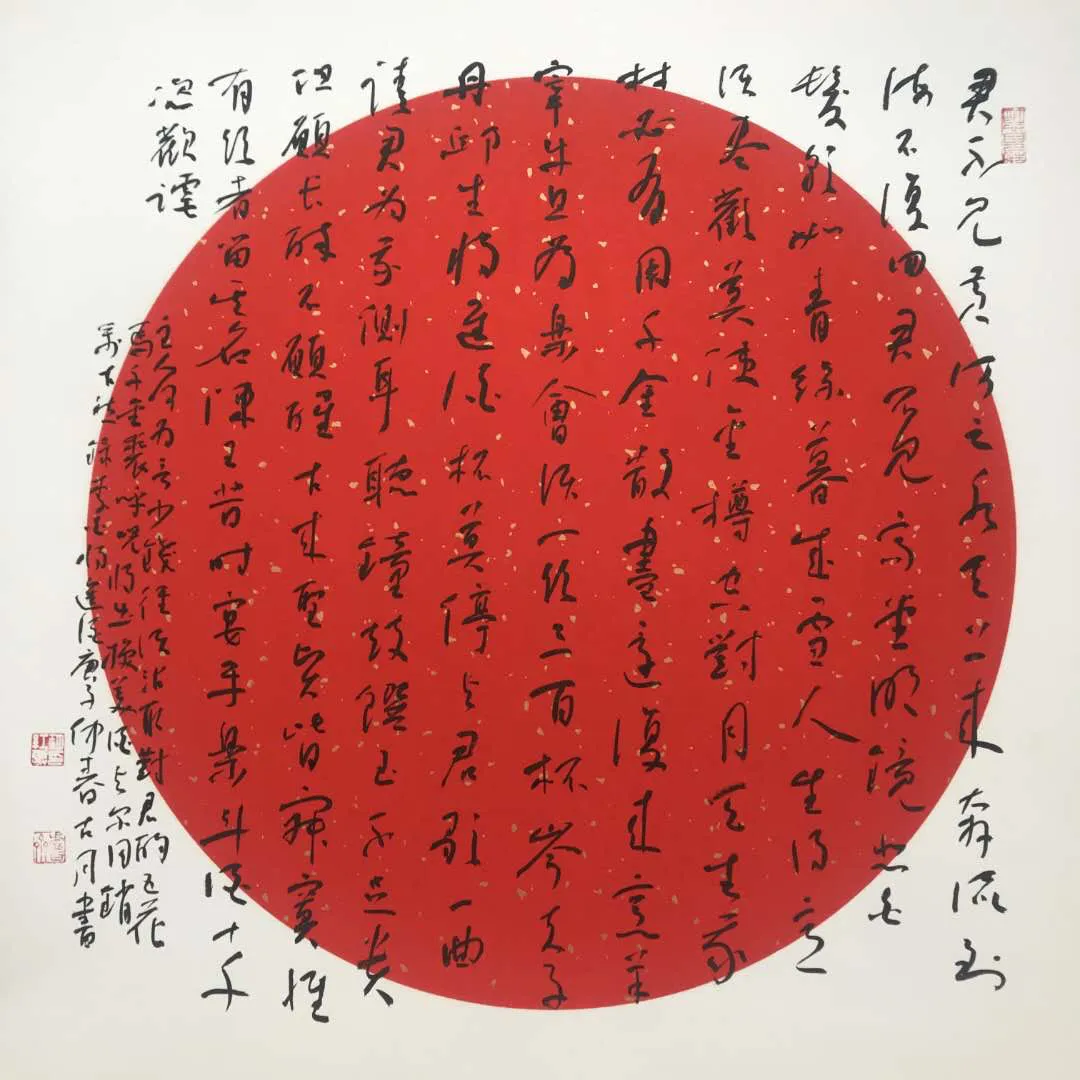 君不见黄河之水天上来奔流到
海不復回君不见高堂明镜悲白
髮朝如青絲暮成雪人生得意
须尽歡莫使金樽空對月天生我
材必有用千金散盡还復来烹羊
宰牛且为樂會须一饮三百杯岑夫子
丹邱生将进酒杯莫停与君歌一曲
请君为我侧耳聽鐘鼓饌玉不足贵
但願长醉不願醒古来聖贤皆寂寞惟
有饮者留其名陳王昔时宴平樂斗酒十千
恣歡谑
主人何为言少錢径须沽取對君酌五花
馬千金裘呼兒将出换美酒与尔同銷
萬古愁錄李白将进酒庚子仲春古月書